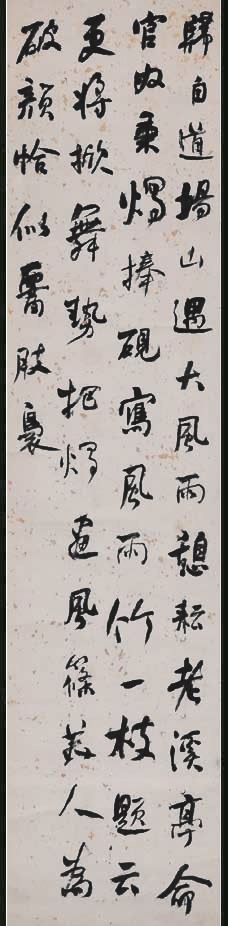 歸自道場山遇大風雨憩耘老溪亭命
官奴秉燭捧硯寫風雨竹一枝題云
更將掀舞勢把燭畫風篠美人為
破顏恰似腰肢裊